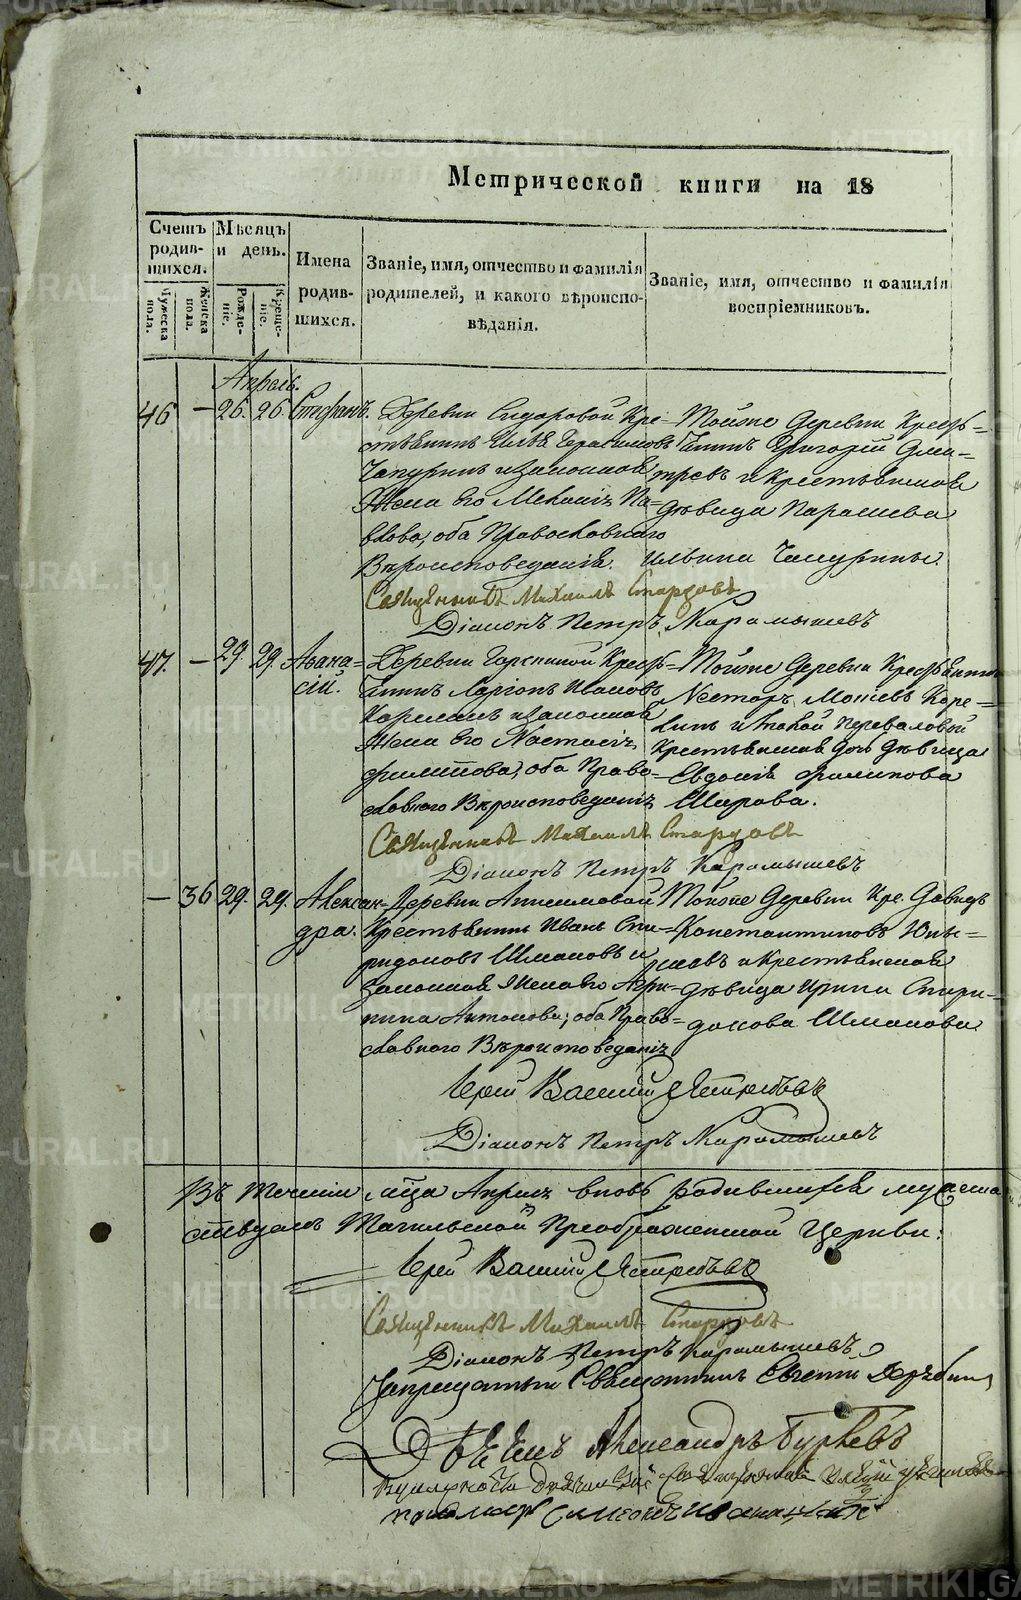 Метрической книги на 18
Счетъ родив-шихся.
Мѣсяцъ и день.
Имена родив-шихся.
Званіе, имя, отчество и фамилія родителей, и какого вѣроиспо-вѣданія.
Званіе, имя, отчество и фамилія воспріемниковъ.
Мужеска пола.
Женска пола.
Рожде-ніе.
Креще-ніе.
Апрель.
46 — 26. 26. Стефанъ.
Деревни Сидоровой Кре-
стьянинъ Илья Герасимовъ
Чапуринъ и законная
Жена его Меланія Па-
влова, оба Православнаго
Вѣроисповеданія.
Тойже деревни Кресть-
янинъ Григорій Дми-
тревъ и крестьянская
дѣвица Парасковья
Ильина Чапурины.
Священникъ Михаилъ Старцовъ
Діаконъ Петръ Карамышевъ
47. — 29. 29. Афана-
сій.
Деревни Кресть-
янинъ Ларіонъ Ивановъ
Карелинъ и законная
Жена его Настасія
Филипова, оба Право-
славного Вѣроисповеданія
Тойже деревни Крестьянинъ
Несторъ Каре-
линъ и Переваловой
Крестьянская дочь дѣвица
Евдокія Филипова
Шарова.
Священникъ Михаилъ Старцовъ
Діаконъ Петръ Карамышевъ
— 36 29. 29. Алексан-
дра.
Деревни Анисимовой
Крестьянинъ Иванъ Спи-
ридоновъ Шмаковъ и
законная жена его Агри-
пина Антонова; оба Право-
славного Вѣроисповеданія
Тойже деревни Кре. Давидъ
Константиновъ
и крестьянская
дѣвица Ирина Спири-
донова Шмакова
Іерей Василій Ястребовъ
Діаконъ Петръ Карамышевъ
Въ теченіи м̃ца Апреля вновь родившихся
Тагильской Преображенской Церкви:
Іерей Василій Ястребовъ
Священникъ Михаилъ Старцовъ
Діаконъ Петръ Карамышевъ
Запрещатный Священникъ Евгеній
Дьячекъ Александръ Бурневъ
пономарь
METRIKI.GASO-URAL.RU